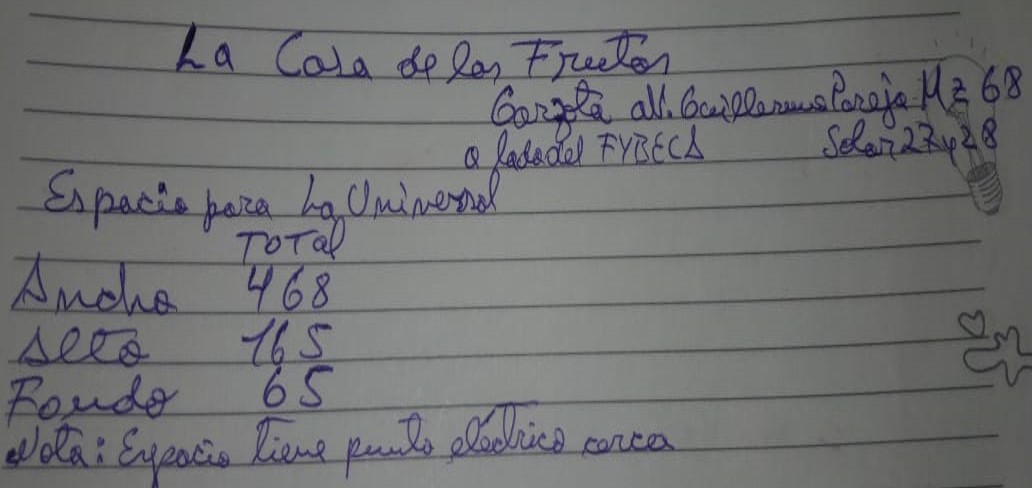 La Casa de las Frutas
Garzota aV. Guillermo Pareja Mz 68
a lado del FYBECA Solar 27 y 28
Espacio para La Universal
TOTal
Ancho 468
Alto 165
Fondo 65
Nota: Espacio tiene punto eléctrico cerca